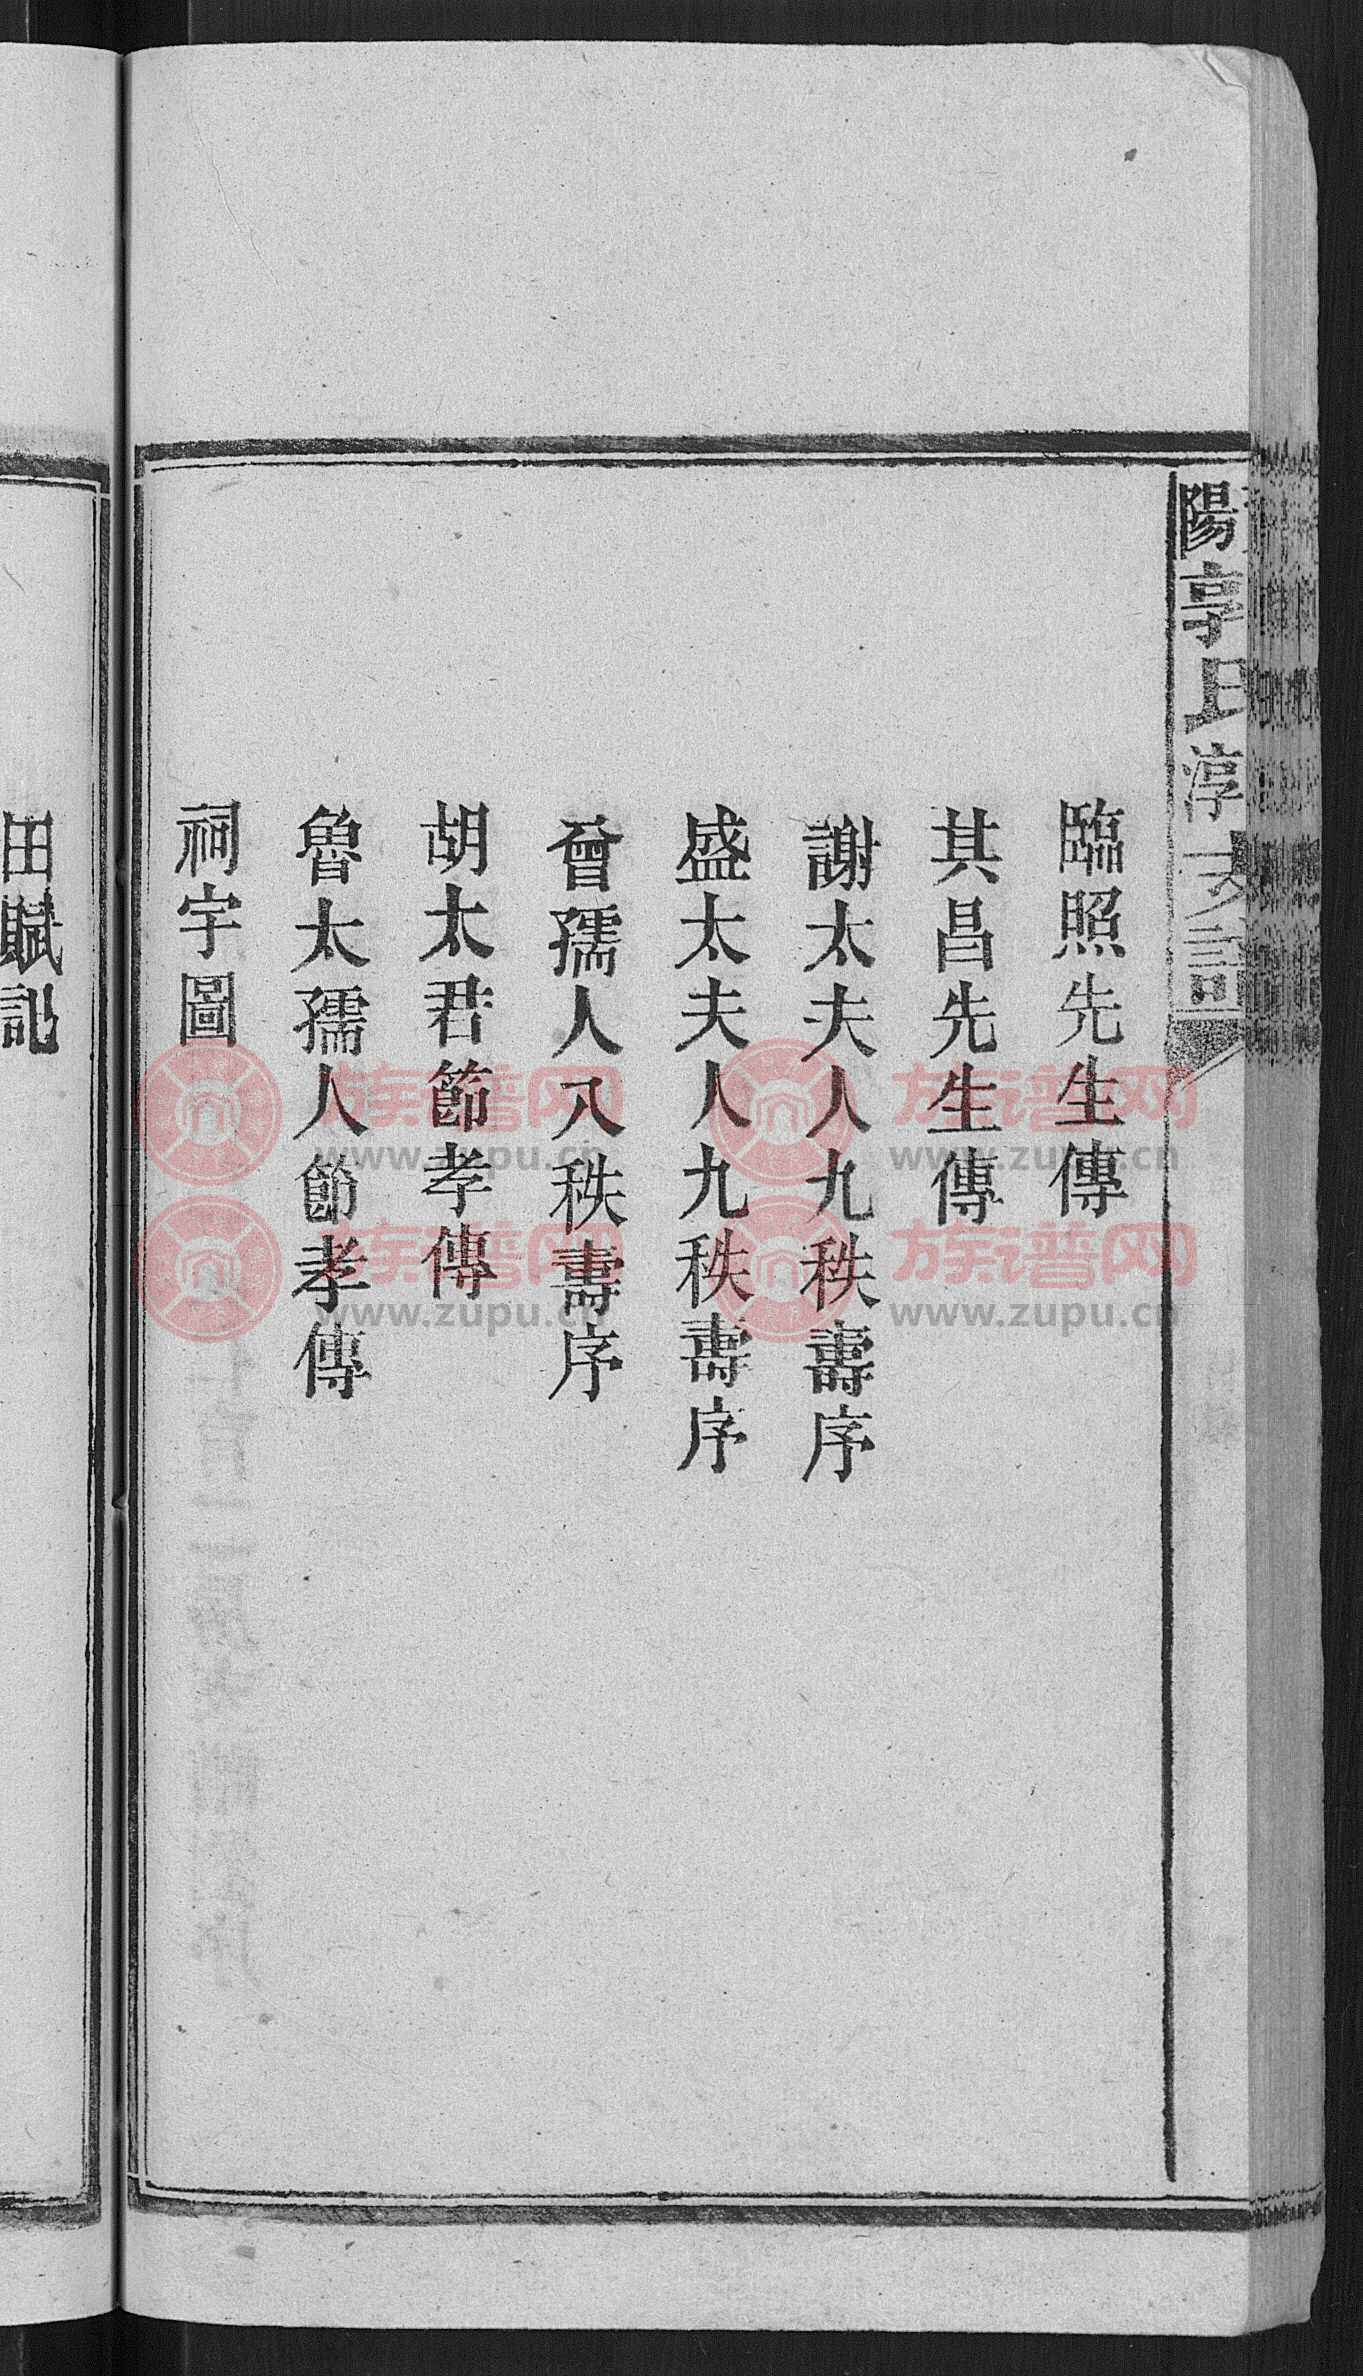 臨照先生傳
其昌先生傳
謝太夫人九秩壽序
盛太夫人九秩壽序
曾孺人八秩壽序
胡太君節孝傳
魯太孺人節孝傳
祠宇圖
田賦記
族谱网
www.zupu.cn
族谱网
www.zupu.cn
族谱网
www.zupu.cn
族谱网
www.zupu.cn